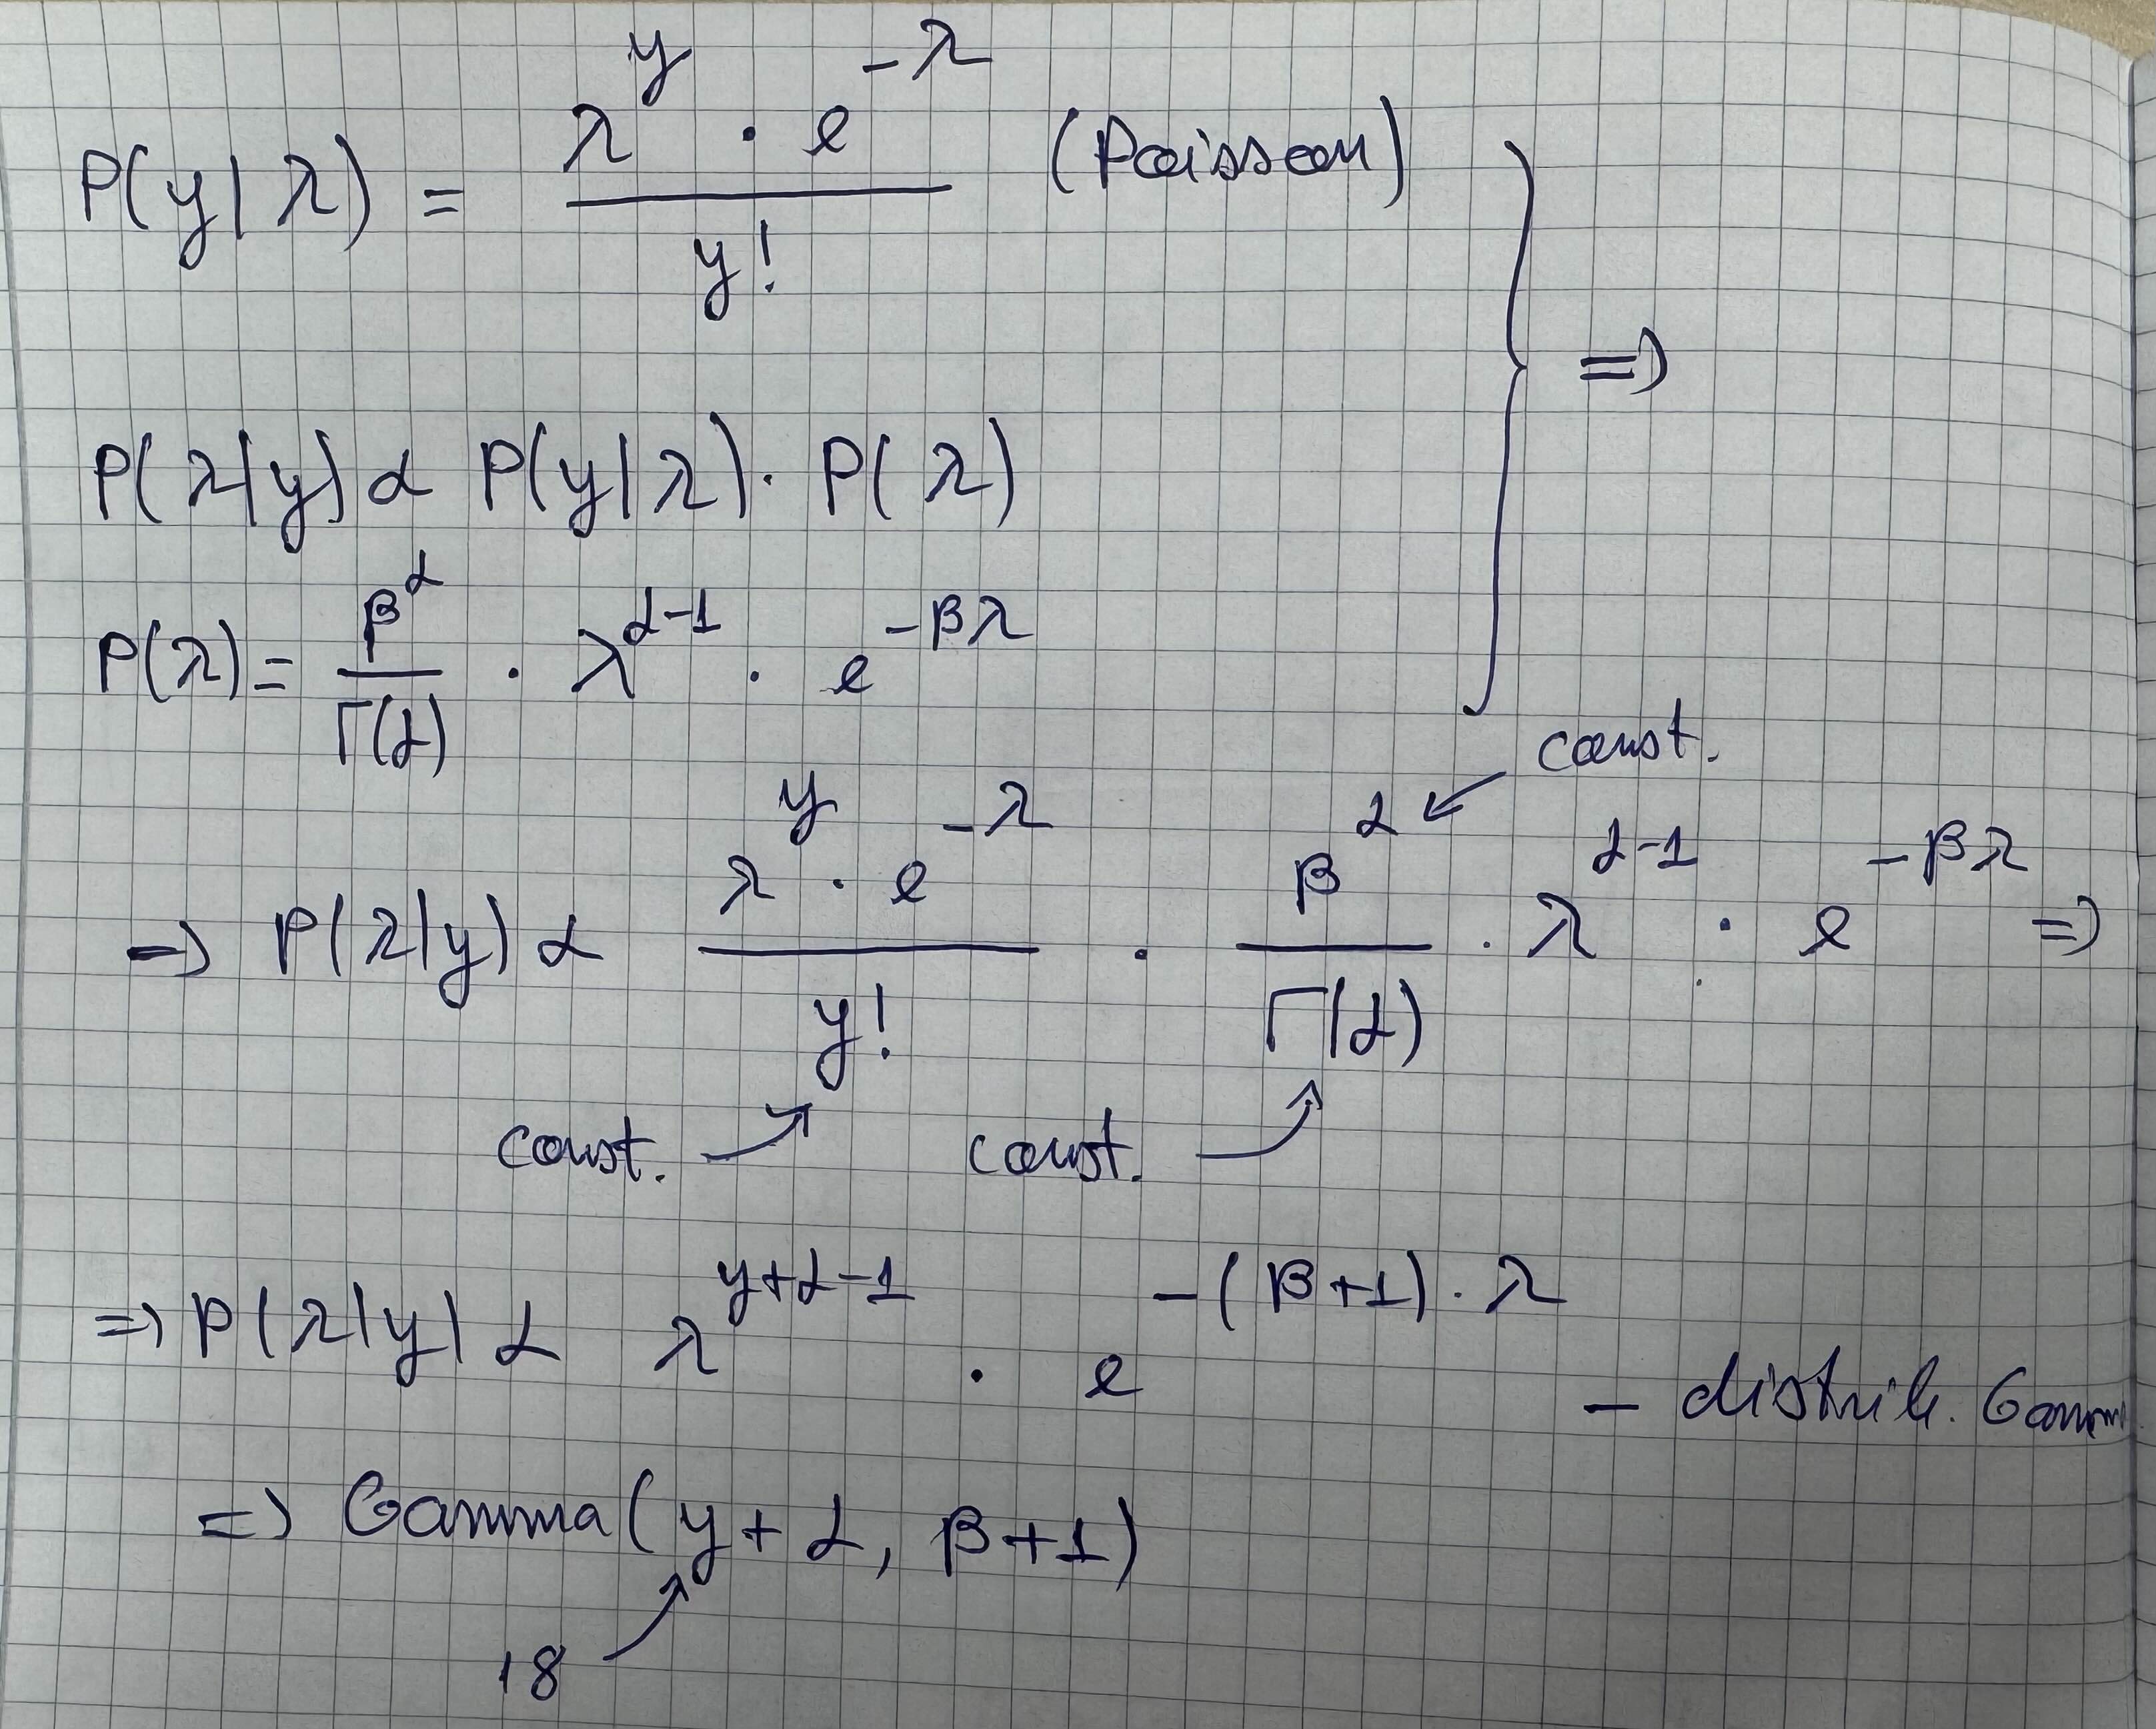 P(y|λ) = λ^y · e^-λ / y! (Poisson)
=>
P(λ|y) α P(y|λ) · P(λ)
P(λ) = β^α / Γ(α) · λ^α-1 · e^-βλ
const.
=> P(λ|y) α λ^y · e^-λ / y! · β^α / Γ(α) · λ^α-1 · e^-βλ =>
const. const.
=> P(λ|y) α λ^y+α-1 · e^-(β+1)·λ - distrib. Gamm
=> Gamma(y+α, β+1)
18